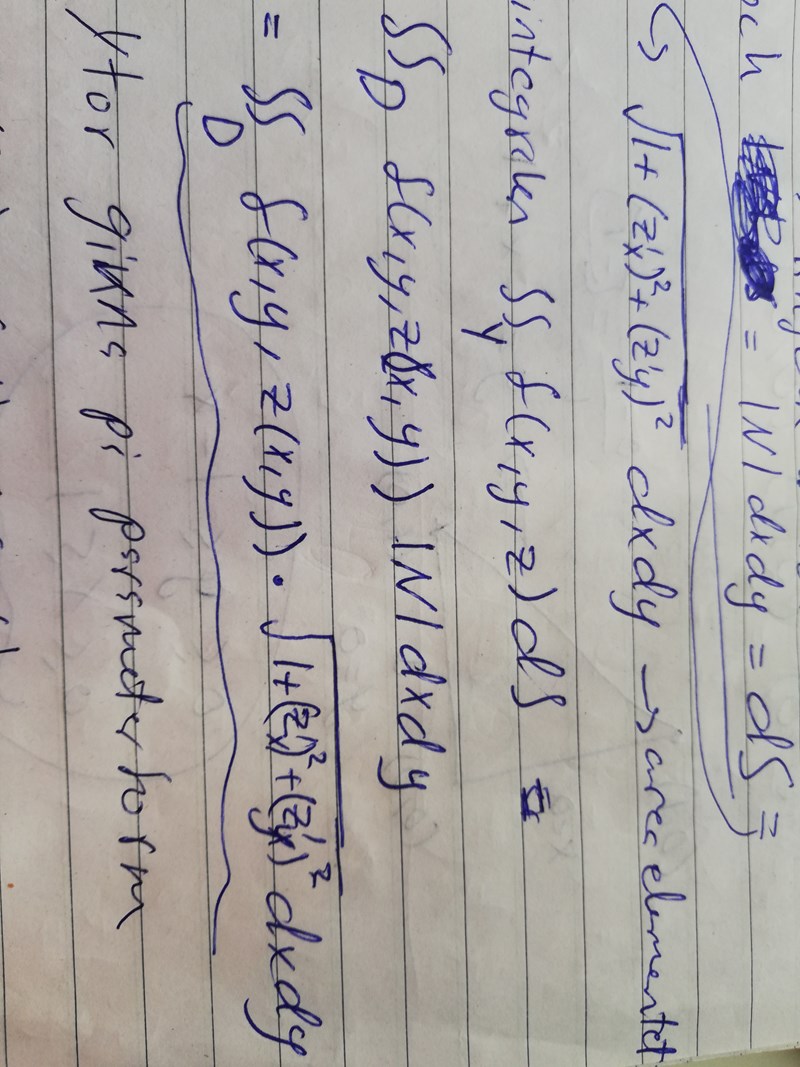 och = |N| dxdy = dS =
↳ √1+(z'x)²+(z'y)² dxdy → area elementet
integralen ∬γ f(x,y,z) dS =
∬D f(x,y,z(x,y)) |N| dxdy
= ∬D f(x,y,z(x,y)) · √1+(z'x)²+(z'y)² dxdy
Ytor givns pi psrsmeterform